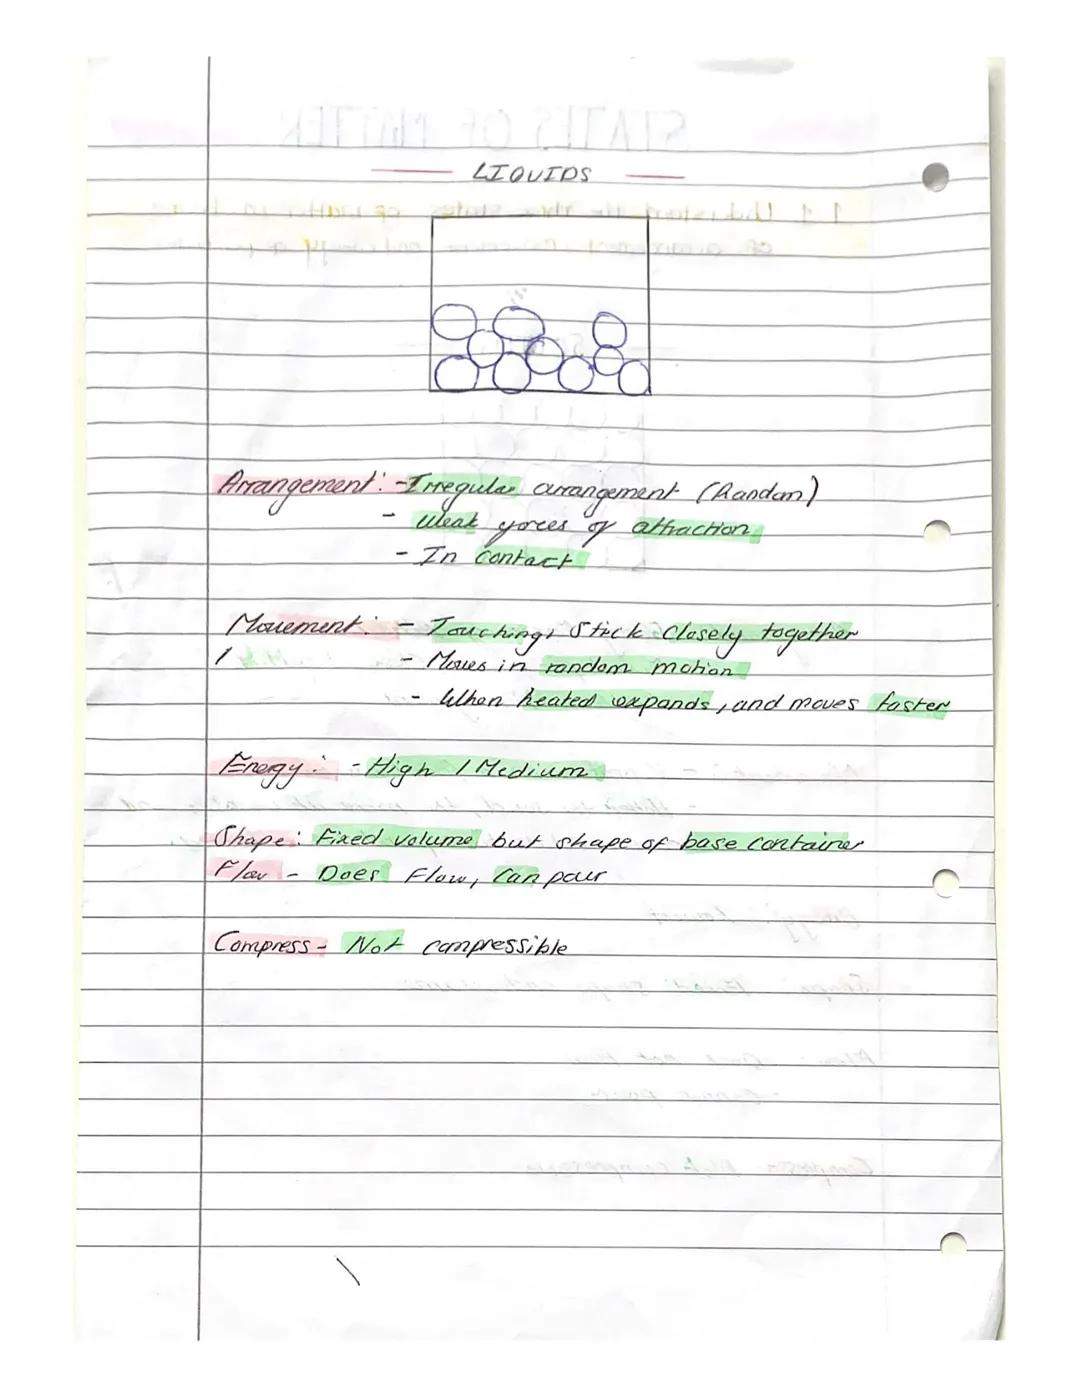 LIQUIDS
Arrangement: - Irregular arrangement (Random)
- Weak forces of attraction
- In contact
Movement: - Touching, Stick Closely together
- Moves in random motion
- When heated expands, and moves faster
Energy: - High / Medium
Shape: Fixed volume but shape of base container
Flow - Does Flow, Can pour
Compress - Not compressible